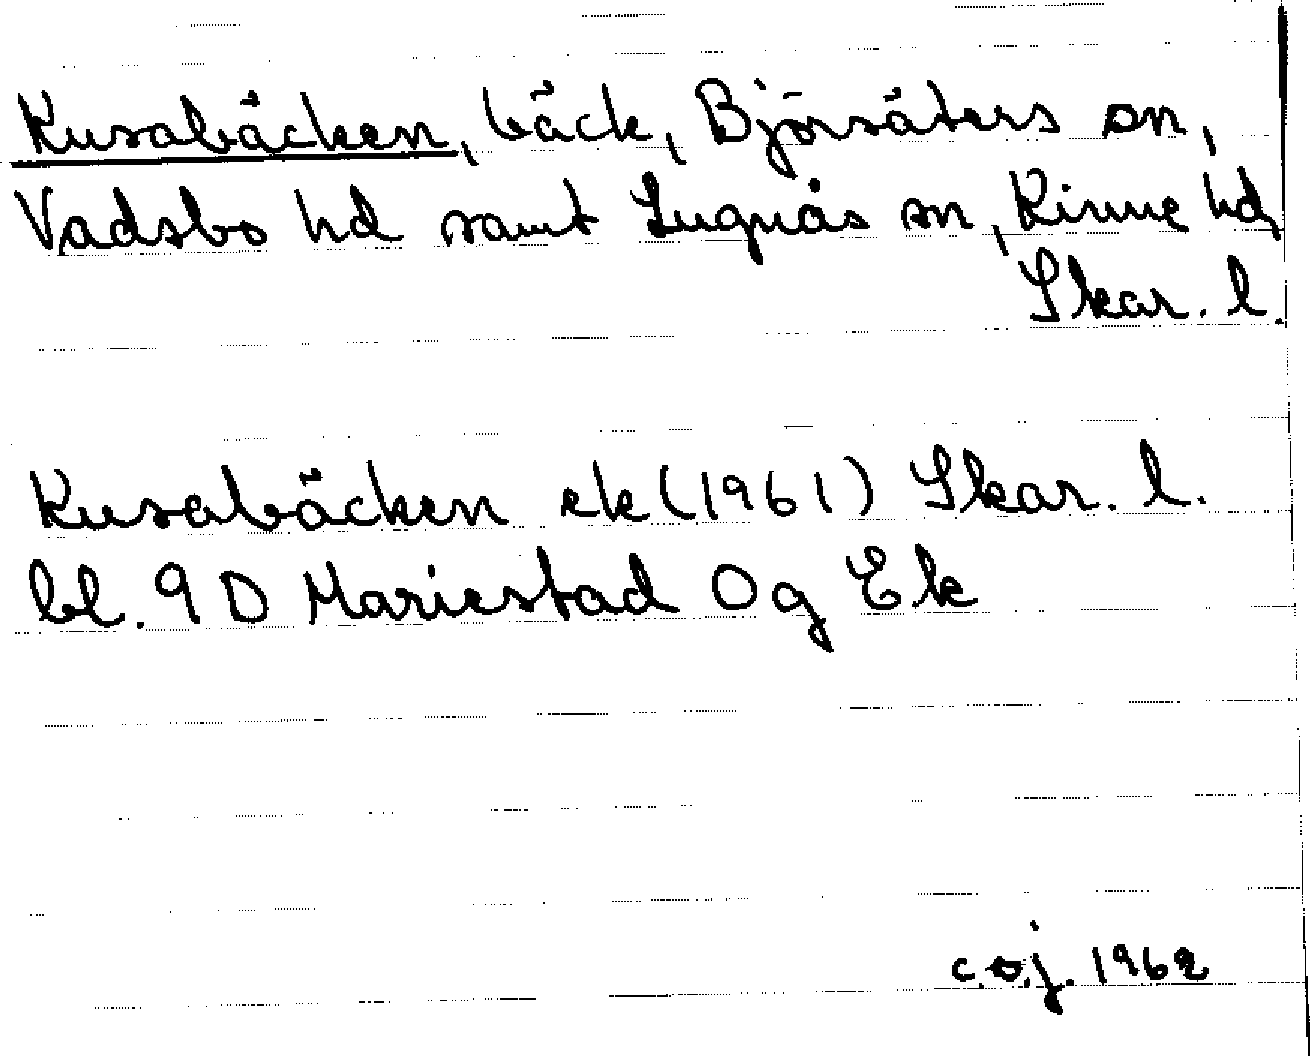 Kusabäcken, bäck, Björsäters sn,
Vadsbo hd samt Lugnås sn, Kinne hd,
Skar. l.
Kusabäcken ek (1961) Skar. l.
bl. 9 D Mariestad 0g Ek
c.o.j. 1962